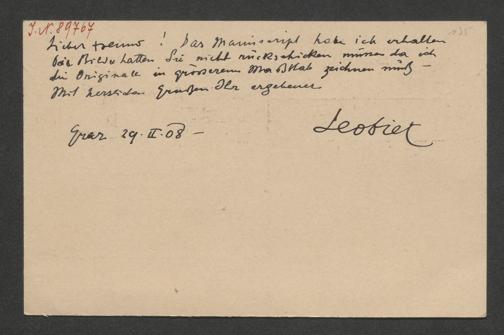 J.N. 89767
Lieber Freund! Das Manuscript habe ich erhalten
die Bilder hätten Sie nicht rückschicken müssen da ich
die Originale in grösserem Maßstab zeichnen muß –
Mit herzlichen Grüßen Ihr ergebener
Graz 29. II. 08 –